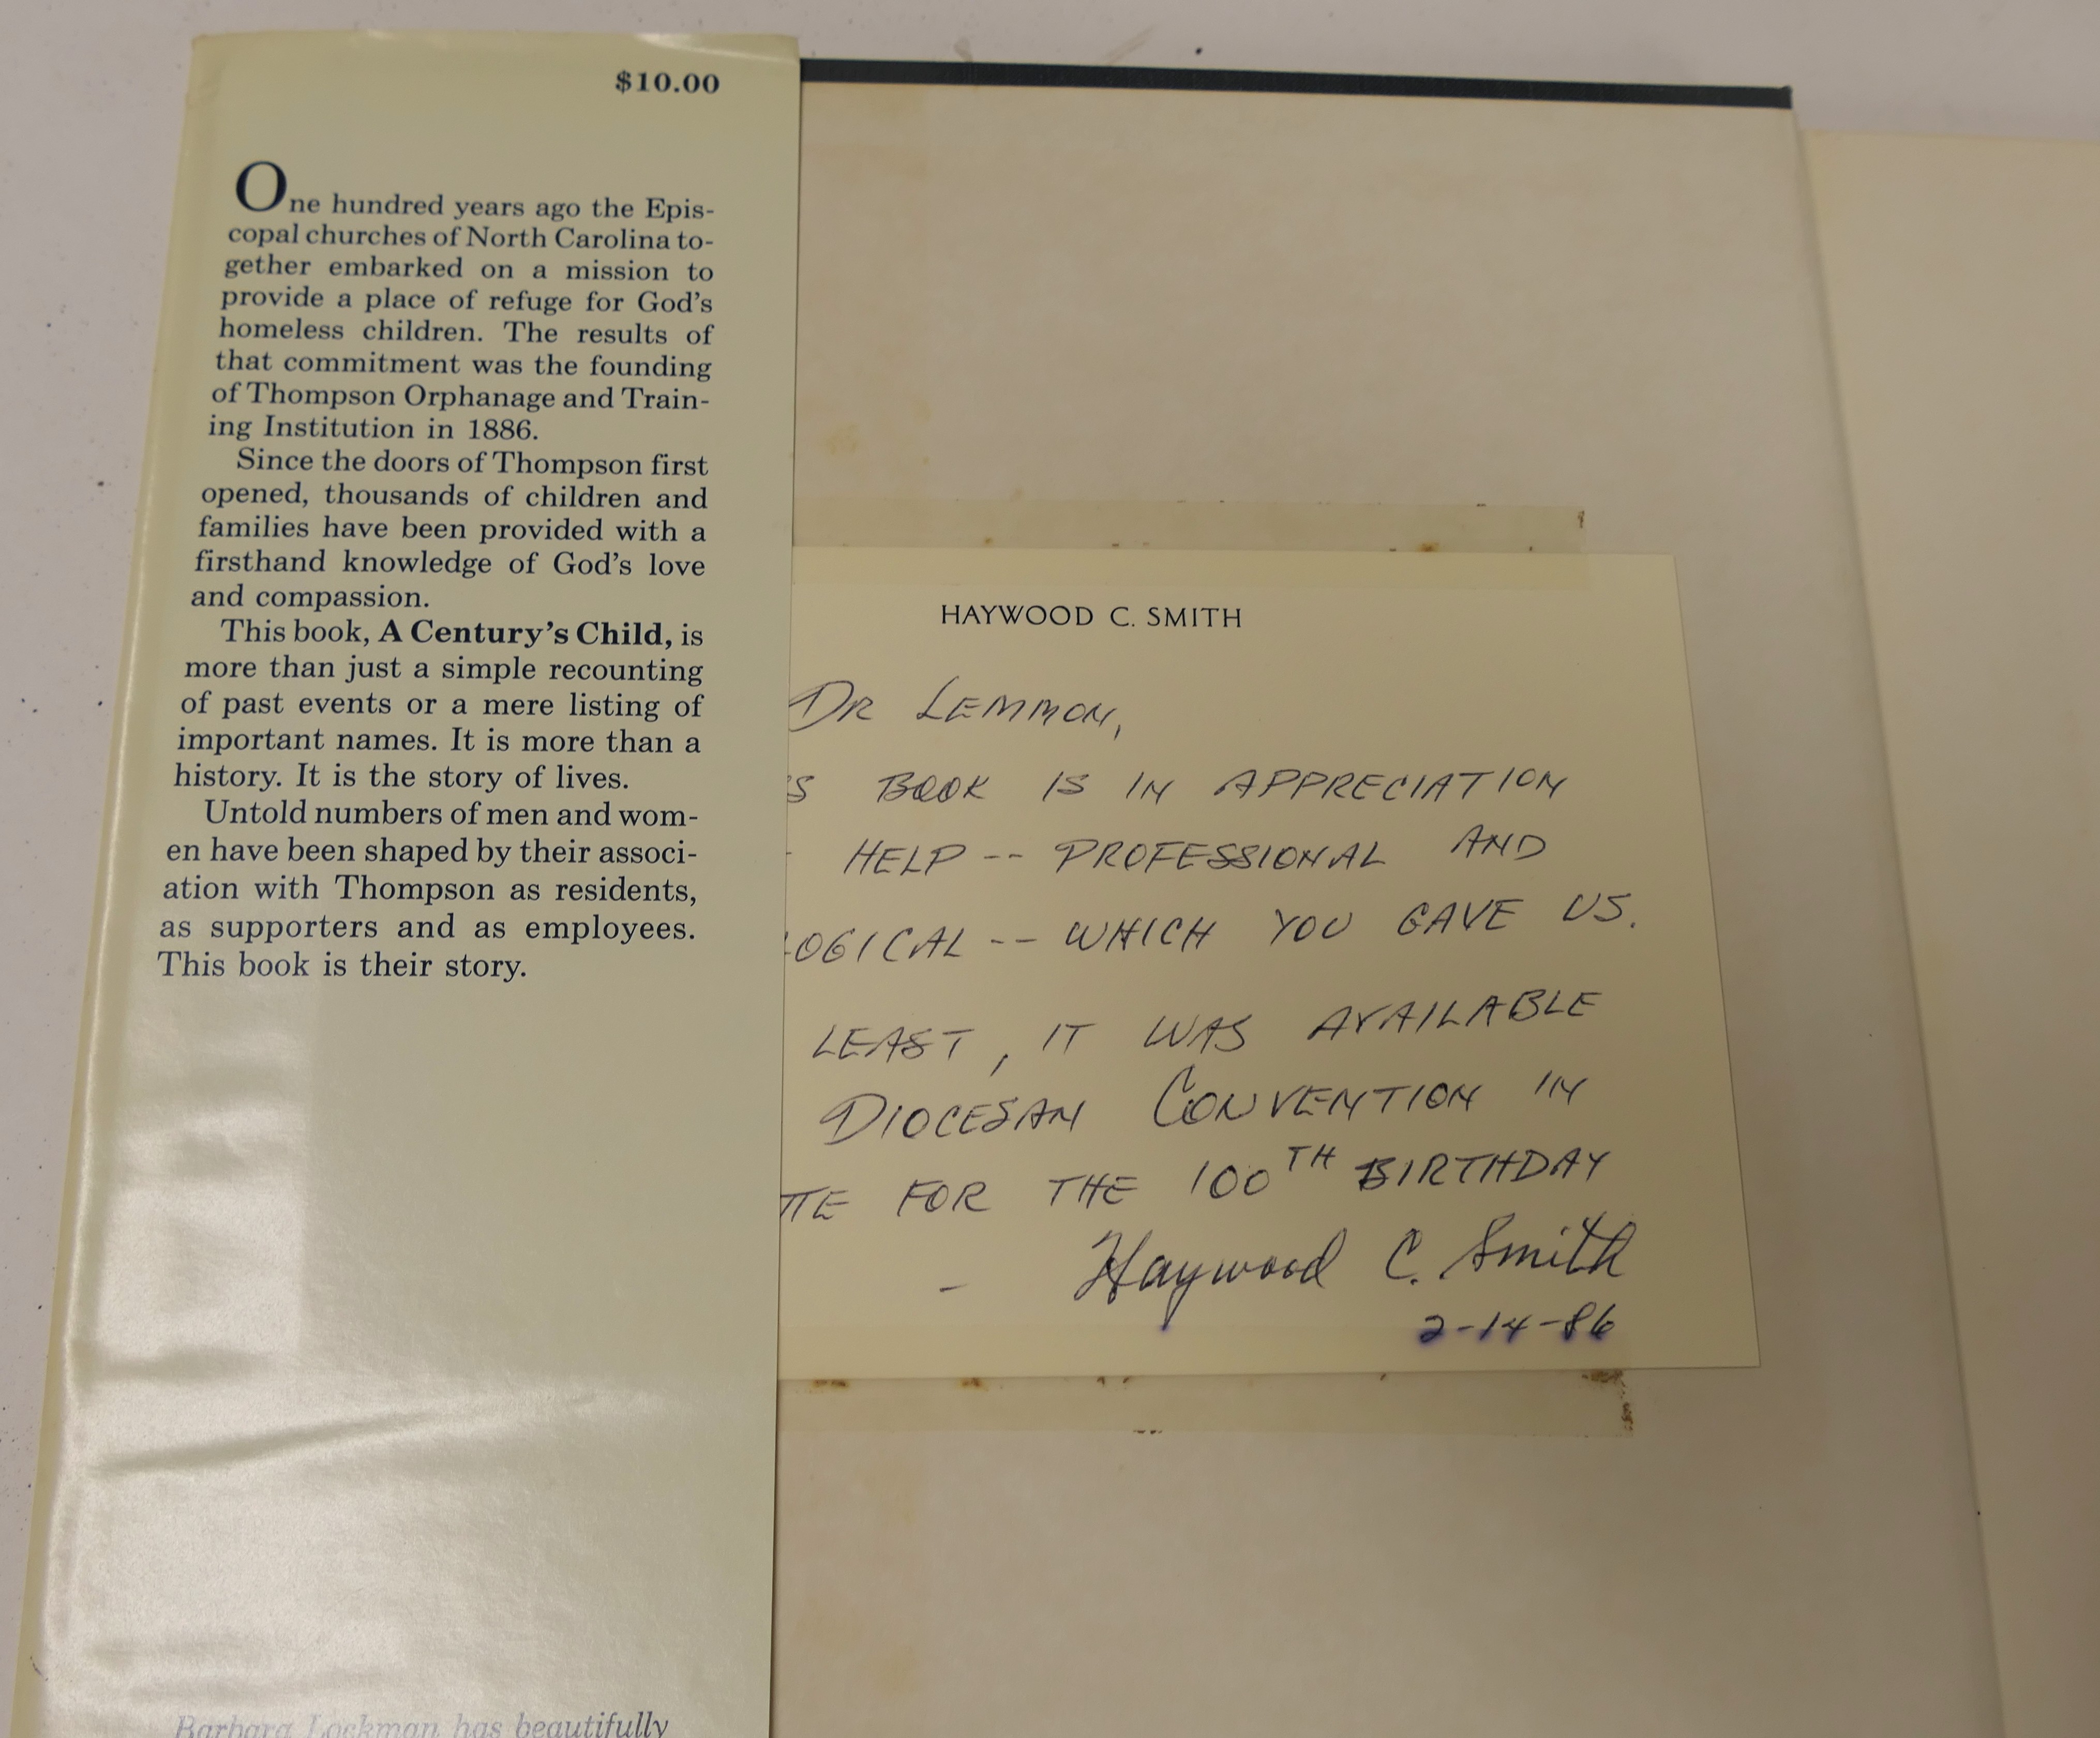 $10.00
One hundred years ago the Epis-
copal churches of North Carolina to-
gether embarked on a mission to
provide a place of refuge for God's
homeless children. The results of
that commitment was the founding
of Thompson Orphanage and Train-
ing Institution in 1886.
Since the doors of Thompson first
opened, thousands of children and
families have been provided with a
firsthand knowledge of God's love
and compassion.
This book, A Century's Child, is
more than just a simple recounting
of past events or a mere listing of
important names. It is more than a
history. It is the story of lives.
Untold numbers of men and wom-
en have been shaped by their associ-
ation with Thompson as residents,
as supporters and as employees.
This book is their story.
Barbara Lockman has beautifully
HAYWOOD C. SMITH
DR LEMMON,
S BOOK IS IN APPRECIATION
HELP -- PROFESSIONAL AND
LOGICAL -- WHICH YOU GAVE US.
LEAST, IT WAS AVAILABLE
DIOCESAN CONVENTION IN
TTE FOR THE 100TH BIRTHDAY
- Haywood C. Smith
2-14-86